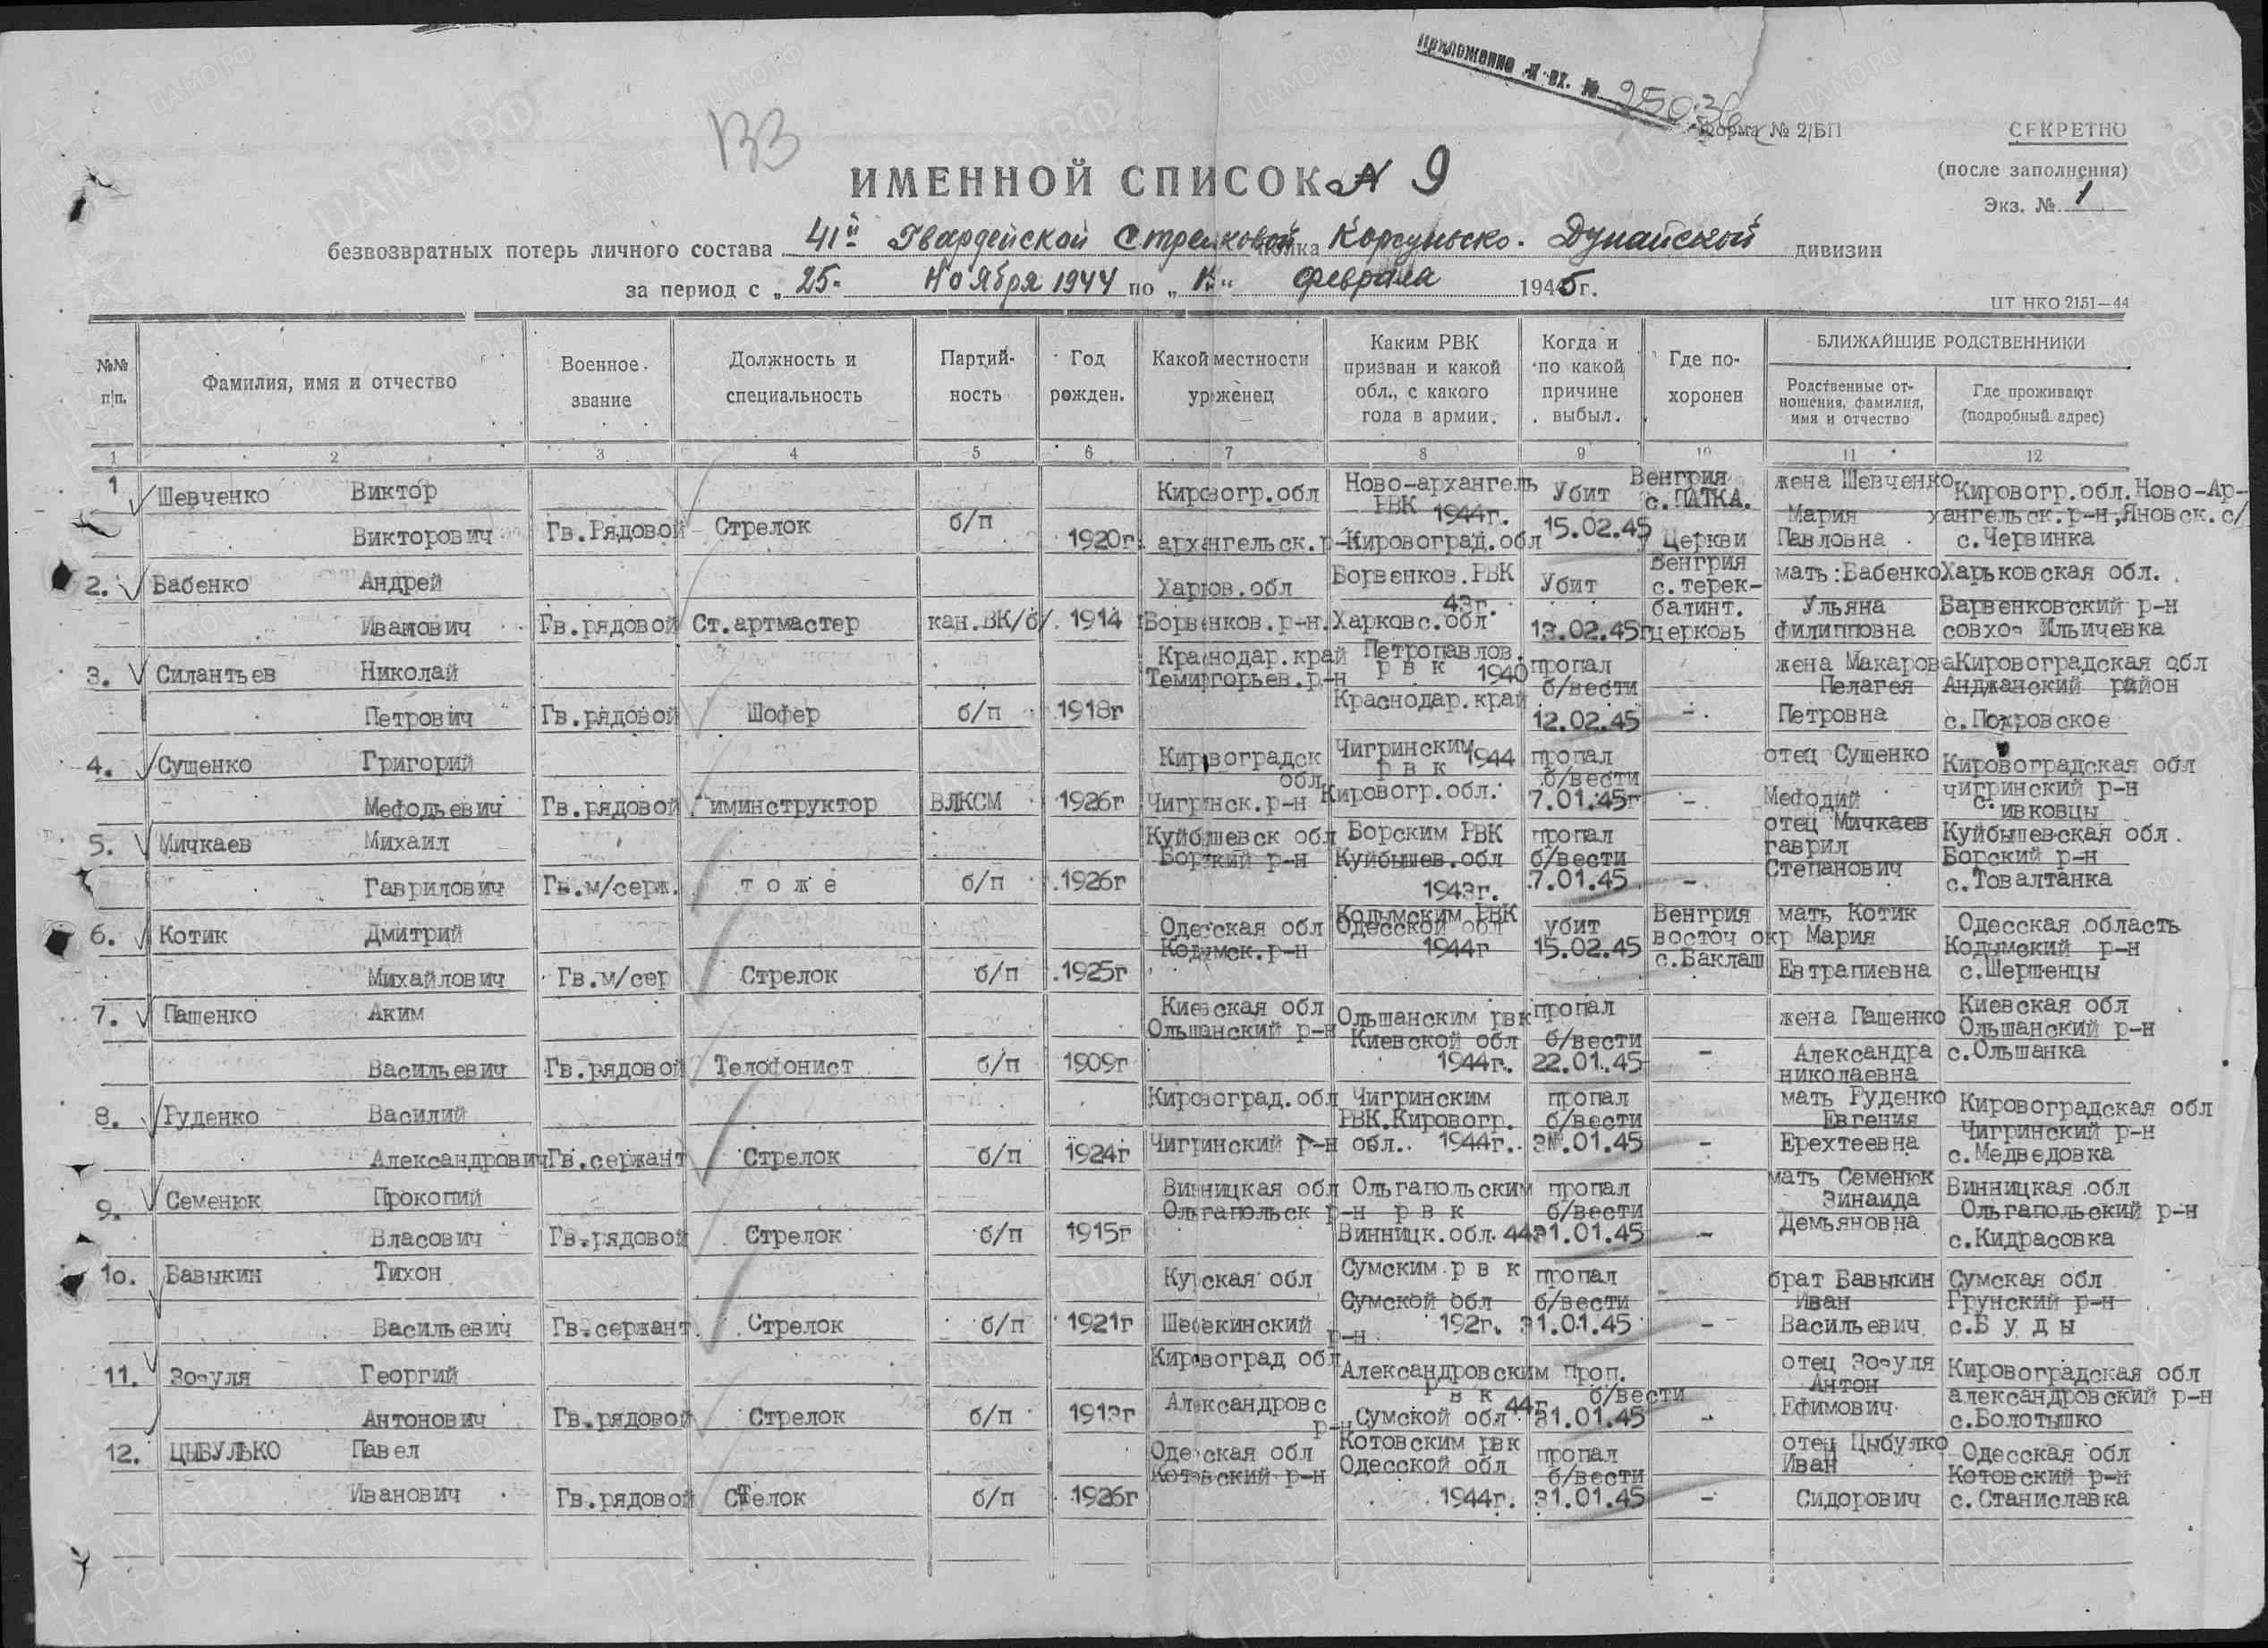 Приложение к вх. №
133
Форма № 2/БП
СЕКРЕТНО
(после заполнения)
Экз. № 1
ИМЕННОЙ СПИСОК № 9
безвозвратных потерь личного состава 41й Гвардейской Стрелковой полка Корсуньско. Дунайской дивизии
за период с „ 25 " ноября 1944 по „ " февраля 1945г.
ЦТ НКО 2151—44
№№ п/п.
Фамилия, имя и отчество
Военное звание
Должность и специальность
Партий-
ность
Год рожден.
Какой местности уроженец
Каким РВК призван и какой обл., с какого года в армии.
Когда и по какой причине выбыл.
Где по-
хоронен
БЛИЖАЙШИЕ РОДСТВЕННИКИ
Родственные от-
ношения, фамилия, имя и отчество
Где проживают (подробный адрес)
1 2 3 4 5 6 7 8 9 10 11 12
1 Шевченко Виктор Кировогр.обл Ново-архангель Убит Венгрия жена Шевченко Кировогр.обл.Ново-Ар-
РВК 1944г. с.ПАТКА. Мария хангельск.р-н,Яновск.с/
Викторович Гв.Рядовой Стрелок б/п 1920г архангельск.р-н Кировоград.обл 15.02.45 Церкви Павловна с.Червинка
2. Бабенко Андрей Харков.обл Борвенков.РВК Убит Венгрия мать:Бабенко Харьковская обл.
43г. с.терек-
балинт. Ульяна Барвенковский р-н
Иванович Гв.рядовой Ст.артмастер кан.ВК/б/ 1914 Борвенков.р-н. Харковс.обл 13.02.45г церковь филипповна совхоз Ильичевка
3. Силантьев Николай Краснодар.край Петропавлов. пропал жена Макарова Кировоградская обл
Темиргорьев.р-н р в к 1940 б/вести Пелагея Анджанский район
Петрович Гв.рядовой Шофер б/п 1918г Краснодар.край 12.02.45 -. Петровна с.Покровское
4. Сущенко Григорий Кировоградск Чигринским 1944 пропал отец Сущенко Кировоградская обл
обл р в к б/вести чигринский р-н
Мефодьевич Гв.рядовой иминструктор ВЛКСМ 1926г Чигринск.р-н Кировогр.обл. 7.01.45г - Мефодий с. ивковцы
5. Мичкаев Михаил Куйбышевск обл Борским РВК пропал отец Мичкаев Куйбышевская обл.
Борский р-н Куйбышев.обл б/вести гаврил Борский р-н
Гаврилович Гв.м/серж. т о ж е б/п 1926г 1943г. 7.01.45 -. Степанович с.Товалтанка
6. Котик Дмитрий Одесская обл Кодымским РВК убит Венгрия мать Котик Одесская область
Кодымск.р-н Одесской обл 1944г 15.02.45 восточ окр Мария Кодымский р-н
Михайлович Гв.м/сер Стрелок б/п 1925г с.Баклаш Евтрапиевна с.Шершенцы
7. Пащенко Аким Киевская обл Ольшанским рвк пропал жена Пащенко Киевская обл
Ольшанский р-н Киевской обл б/вести Ольшанский р-н
Васильевич Гв.рядовой Телофонист б/п 1909г 1944г. 22.01.45 - Александра с.Ольшанка
николаевна
8. Руденко Василий Кировоград.обл Чигринским пропал мать Руденко Кировоградская обл
РВК.Кировогр. б/вести Евгения Чигринский р-н
Александрович Гв.сержант Стрелок б/п 1924г Чигринский р-н обл.. 1944г. .01.45 - Ерехтеевна с.Медведовка
9. Семенюк Прокопий Винницкая обл Ольгапольским пропал мать Семенюк Винницкая обл
Ольгапольск р-н р в к б/вести Зинаида Ольгапольский р-н
Власович Гв.рядовой Стрелок б/п 1915г Винницк.обл.44 31.01.45 - Демьяновна с.Кидрасовка
10. Бавыкин Тихон Курская обл Сумским р в к пропал брат Бавыкин Сумская обл
Сумской обл б/вести Иван Грунский р-н
Васильевич Гв.сержант Стрелок б/п 1921г Шебекинский р-н. 192г. 31.01.45 - Васильевич с.Б у д ы
11. Зозуля Георгий Кировоград обл Александровским проп. отец Зозуля Кировоградская обл
р в к 44г б/вести Антон александровский р-н
Антонович Гв.рядовой Стрелок б/п 1913г Александровс р-н Сумской обл 31.01.45 - Ефимович с.Болотышко
12. ЦЫБУЛЬКО Павел Одесская обл Котовским рвк пропал отец Цыбулко Одесская обл
Котовский р-н Одесской обл б/вести Иван Котовский р-н
Иванович Гв.рядовой Стелок б/п 1926г 1944г. 31.01.45 - Сидорович с.Станиславка